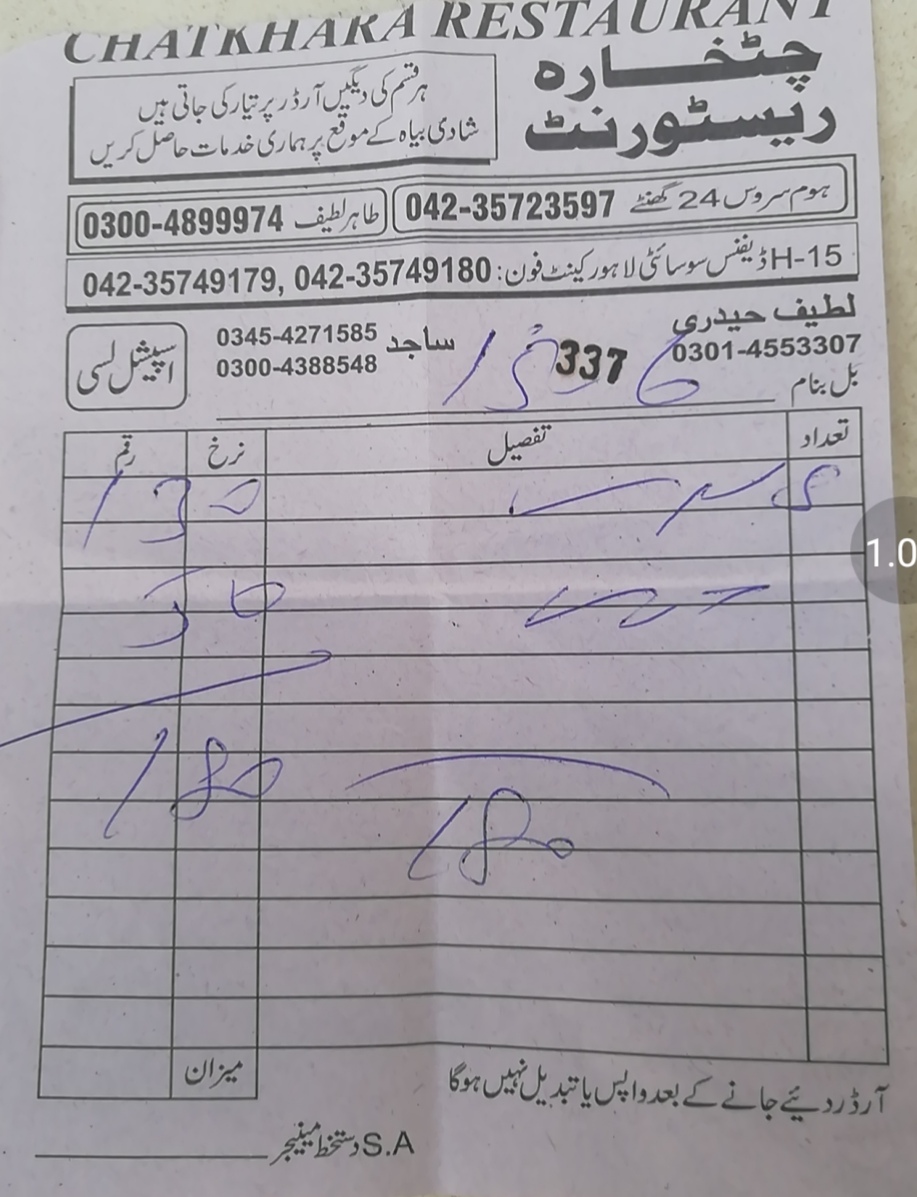 CHATKHARA RESTAURANT
چٹخارہ
ریسٹورنٹ
ہر قسم کی دیگیں آرڈر پر تیار کی جاتی ہیں
شادی بیاہ کے موقع پر ہماری خدمات حاصل کریں
ہوم سروس 24 گھنٹے 042-35723597
طاہر لطیف 0300-4899974
H-15 ڈیفنس سوسائٹی لاہور کینٹ فون: 042-35749180 ,042-35749179
لطیف حیدری
0301-4553307
ساجد 0345-4271585
0300-4388548
اسپیشل لسی
337
بل بنام
تعداد تفصیل نرخ رقم
130
50
180
180
میزان
آرڈر دیئے جانے کے بعد واپس یا تبدیل نہیں ہوگا
S.A دستخط مینیجر
1.0